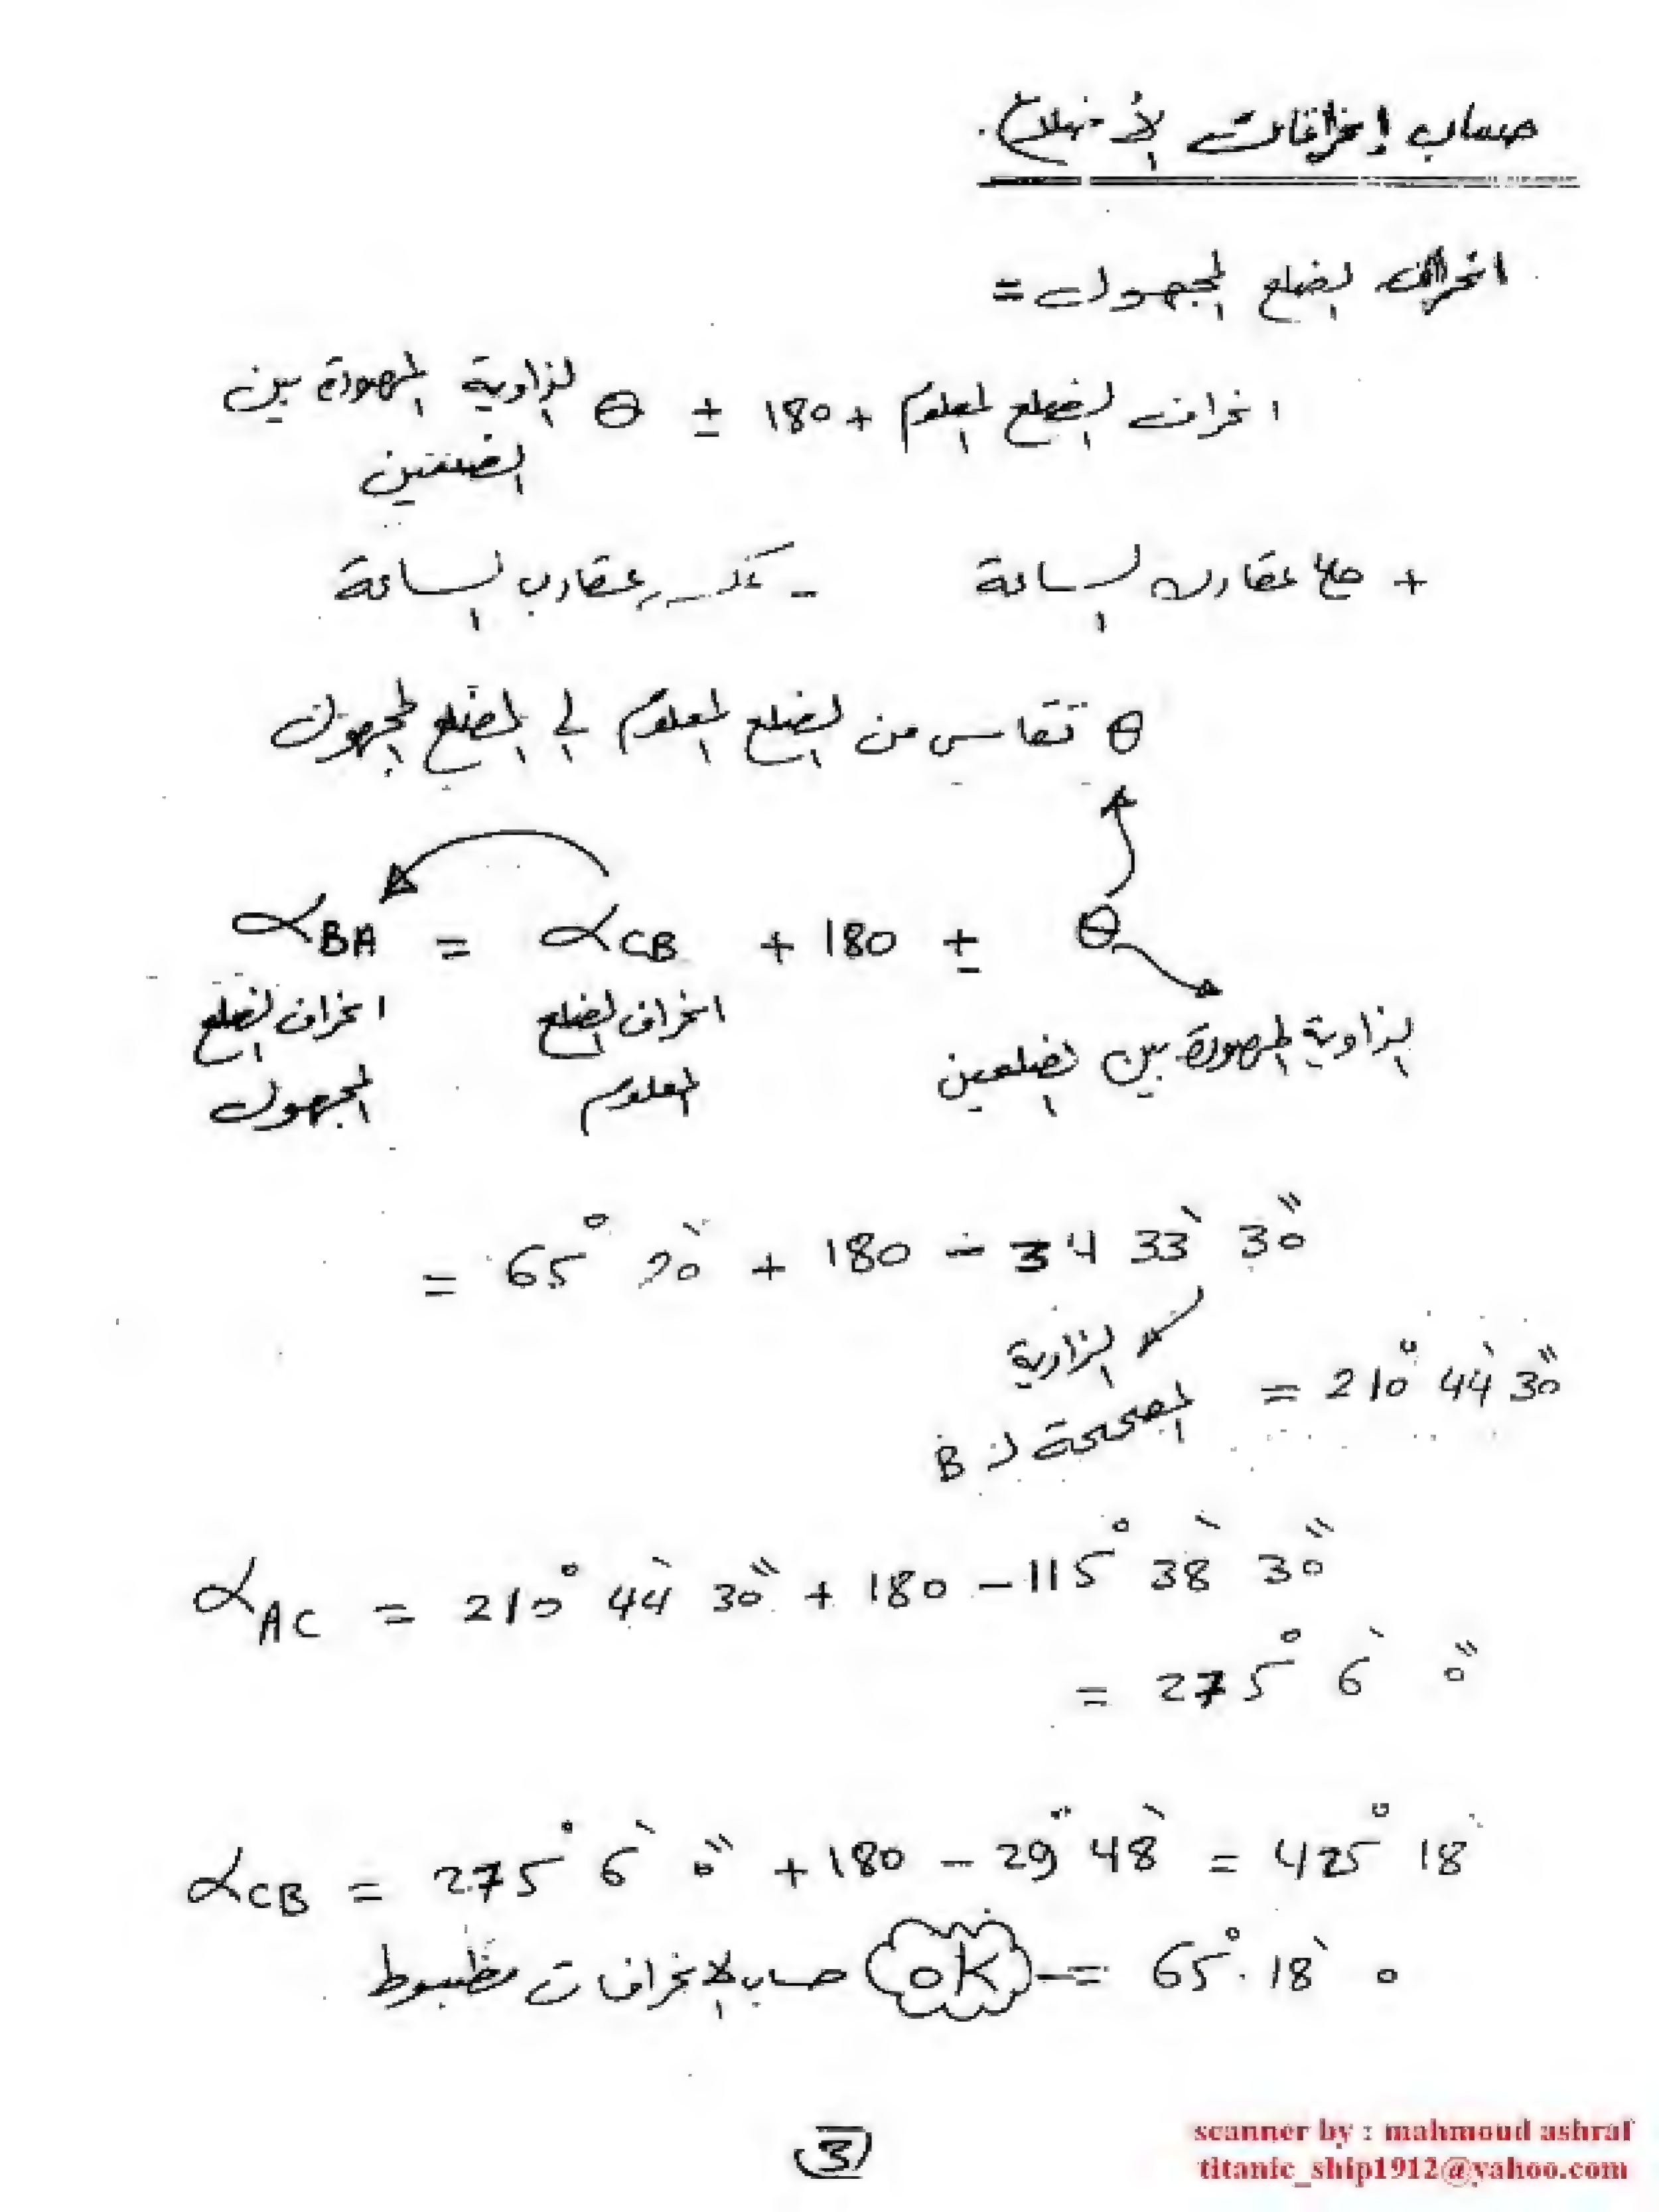 حساب إنحرافات الأضلاع.
انحراف الضلع المجهول =
انحراف الضلع المعلوم + 180 ± θ الزاوية المحصورة بين
الضلعين
+ مع عقارب الساعة - عكس عقارب الساعة
θ تقاس من الضلع المعلوم الى الضلع المجهول
αBA = αCB + 180 ± θ
انحراف الضلع المجهول
انحراف الضلع المعلوم
الزاوية المحصورة بين الضلعين
= 65° 20' + 180 - 34 33' 30"
الزاوية
المصححة لـ B
= 210° 44' 30"
αAC = 210° 44' 30" + 180 - 115° 38' 30"
= 275° 6' 0"
αCB = 275° 6' 0" + 180 - 29° 48' = 425° 18'
= 65° 18' 0
OK حساب الانحرافات مظبوط
3
scanner by : mahmoud ashraf
titanic_ship1912@yahoo.com